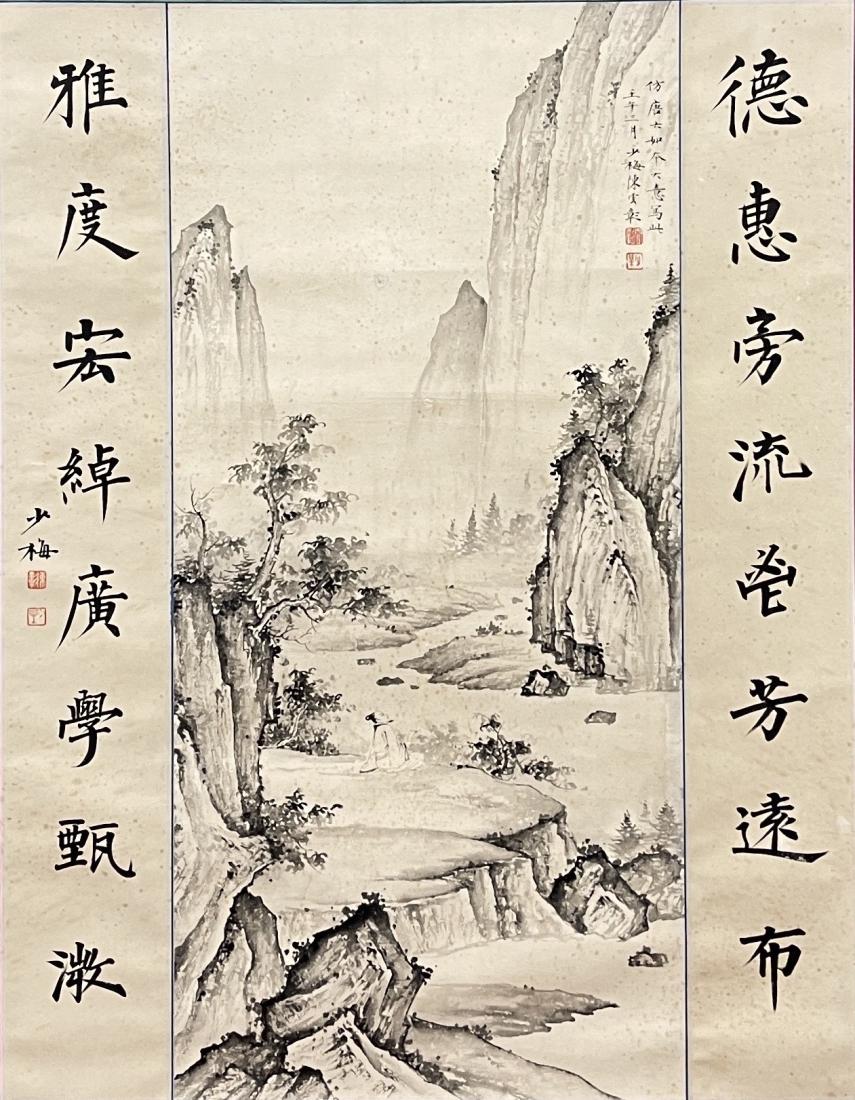 德惠旁流鬯芳遠布
仿唐六如本大意寫此
壬午二月少梅陳雲彰
雅度宏綽廣學甄微
少梅